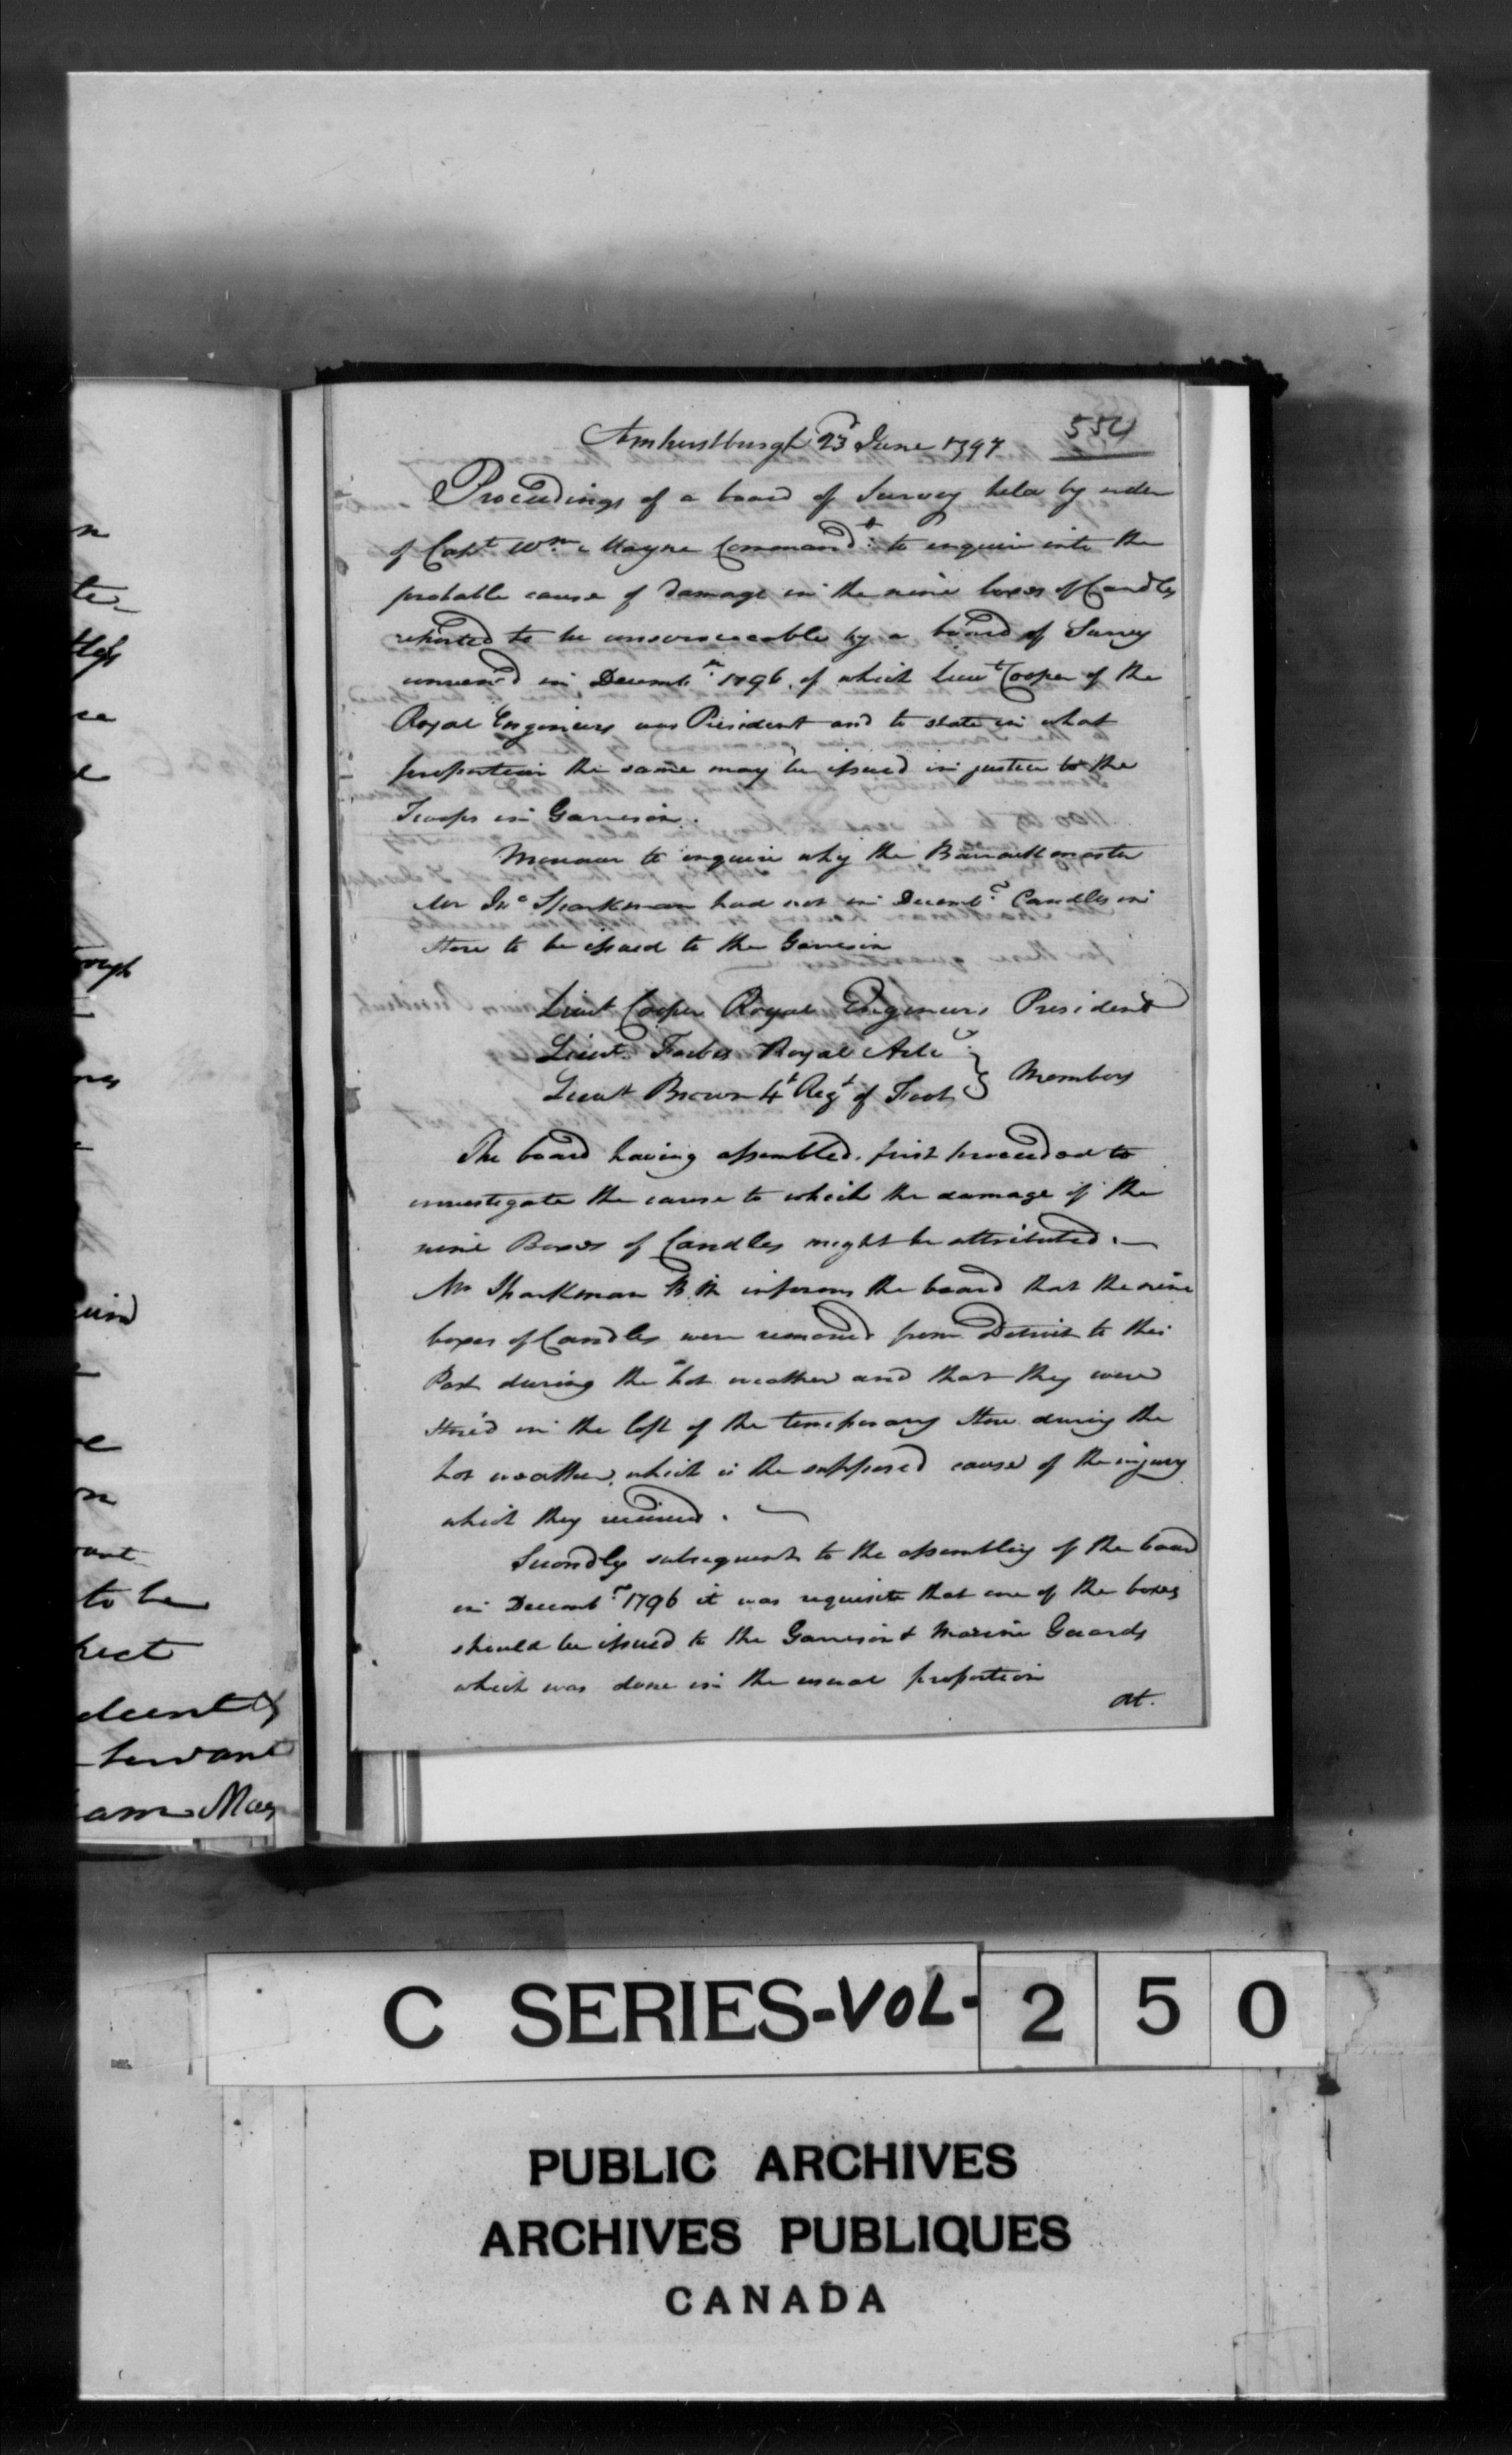 554
Amherstburgh 23d June 1797
Proceedings of a board of Survey held by order
of Capt. Wm. Mayne Commandt. to enquire into the
probable cause of damage in the nine boxes of Candles
reported to be unserviceable by a board of Survey
convened in Decembr. 1796, of which Lieut Cooper of the
Royal Engineers was President and to state in what
proportion the same may be issued in justice to the
Troops in Garrison.
Moreover to enquire why the Barrackmaster
Mr Jno Sparkman had not in Decembr. Candles in
Store to be issued to the Garrison
Lieut Cooper Royal Engineers President
Lieut. Forbes Royal Arty
Lieut Brown 4t Regt of Foot } Members
The board having assembled, first proceeded to
investigate the cause to which the damage of the
nine Boxes of Candles might be attributed.
Mr Sparkman B. M. informs the board that the nine
boxes of Candles were removed from Detroit to this
Post during the hot weather and that they were
Stored in the loft of the temporary Store during the
hot weather, which is the supposed cause of the injury
which they received.
Secondly subsequent to the assembling of the board
in Decembr. 1796 it was requisite that one of the boxes
should be issued to the Garrison & Marine Guards
which was done in the usual proportion
At.
to be
servant
C SERIES-VOL-250
PUBLIC ARCHIVES
ARCHIVES PUBLIQUES
CANADA